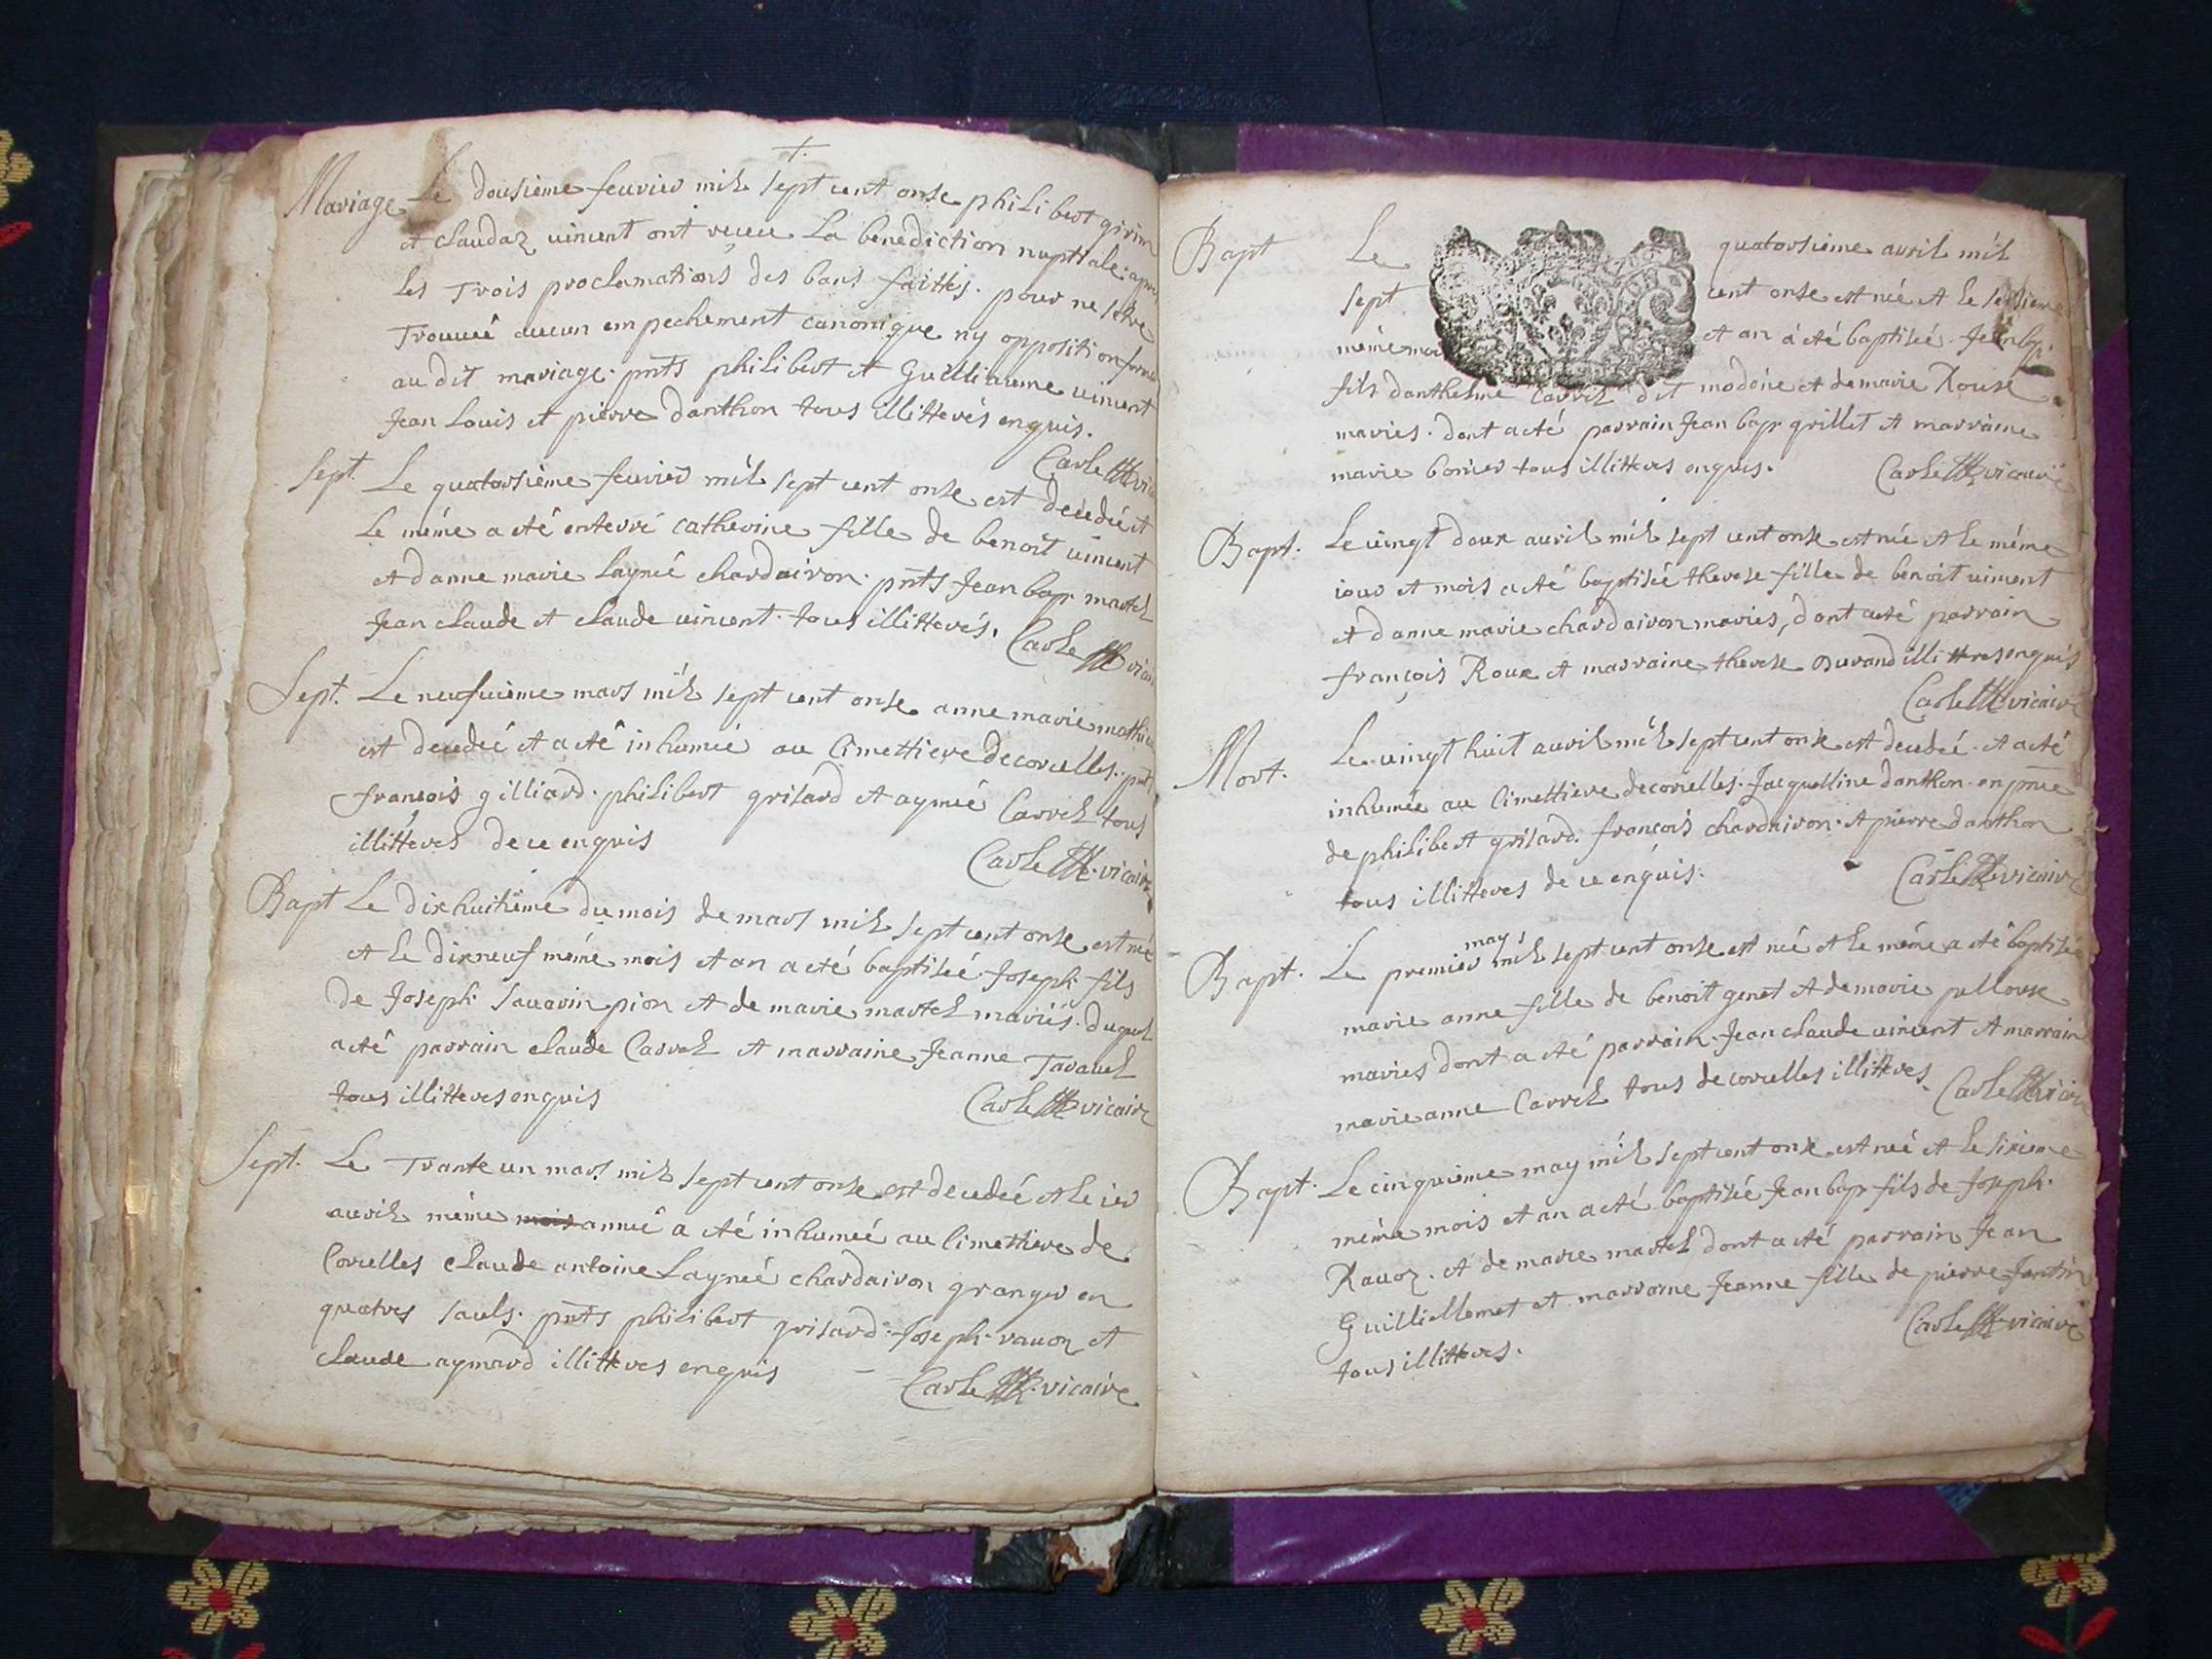 Mariage Le dousieme feurier mil sept cent onse philibert girin
et claudaz uincent ont receu La benediction nuptiale apres
les Trois proclamations des bans faittes. pour ne s'etre
Trouué aucun empechement canonique ny opposition formée
au dit mariage. pnts philibert et Guilliaume uincent
Jean Louis et pierre danthon tous illitterés enquis.
Carle vicaire
Sept. Le quatorsième feurier mil sept cent onse est decedée et
le même a eté enterré catherine fille de benoit uincent
et danne marie laynée chardairon. pnts Jean bap martel
Jean claude et claude uincent. tous illitterés.
Carle vicaire
Sept. Le neufuième mars mil sept cent onse anne marie mathieu
est decedée et a eté inhumée au cimettiere de corcelles. pnts
françois gilliard. philibert grisard et aymé Carrel tous
illitteres de ce enquis
Carle vicaire
Bapt Le dixhuitième du mois de mars mil sept cent onse est né
et le dixneuf méme mois et an a eté baptisé Joseph fils
de Joseph Sauarin pion et de marie martel mariés. duquel
a eté parrain claude Carrel et marraine Jeanne Tarauel
tous illitteres enquis
Carle vicaire
Sept. Le Trante un mars mil sept cent onse est decedée et le ier
auril méme mois année a eté inhumée au cimettiere de
Corcelles claude antoine Laynée chardairon granger en
quatres sauls. pnts philibert grisard. Joseph rauoz et
claude aymard illitteres enquis
Carle vicaire
Bapt Le quatorsieme avril mil
sept cent onse est née et le
méme mois et an a eté baptisée Jean bap.
fils danthelme Carrel dit modéne et de marie Rouse
mariés. dont a eté parrain Jean bap grillet et marraine
marie borier tous illitteres enquis.
Carle vicaire
Bapt. Le uingt deux auril mil sept cent onse est née et le méme
iour et mois a eté baptisée therese fille de benoit uincent
et danne marie chardairon mariés, dont a eté parrain
françois Roux et marraine therese Durand illitteres enquis
Carle vicaire
Mort. Le uingt huit auril mil sept cent onse est decedée. et a eté
inhumée au cimettiere de corcelles. Jacquelline danthon. en pnce
de philibert grisard. françois chardairon. et pierre danthon
tous illitteres de ce enquis.
Carle vicaire
Bapt. Le premier mays mil sept cent onse est née et le méme a eté baptisée
marie anne fille de benoit genet et de marie pellouse
mariés dont a eté parrain. Jean claude uincent et marraine
marie anne Carrel tous de corcelles illitteres
Carle vicaire
Bapt. Le cinquieme may mil sept cent onse est née et le sixieme
méme mois et an a eté baptisée Jean bap fils de Joseph.
Rauoz. et de marie martel dont a eté parrain Jean
Guilliellemet et marraine Jeanne fille de pierre fantin
tous illitteres.
Carle vicaire